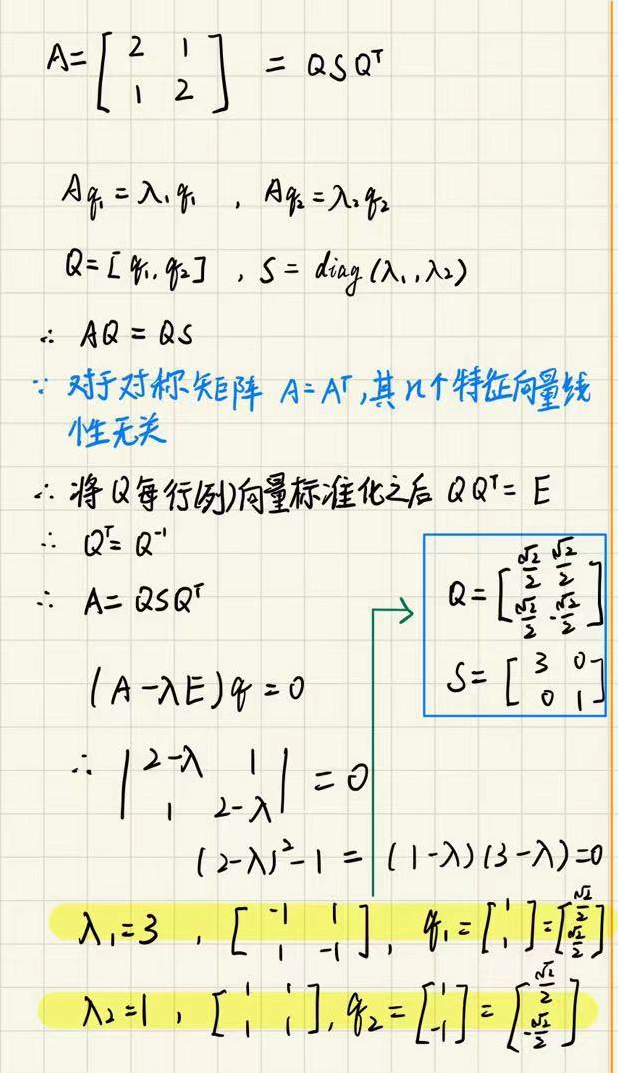 A = [ 2 1 ; 1 2 ] = QSQᵀ
Aq₁ = λ₁q₁ , Aq₂ = λ₂q₂
Q = [q₁, q₂] , S = diag(λ₁, λ₂)
∴ AQ = QS
∵ 对于对称矩阵 A = Aᵀ, 其n个特征向量线
性无关
∴ 将Q每行(列)向量标准化之后 QQᵀ = E
∴ Qᵀ = Q⁻¹
∴ A = QSQᵀ
Q = [ √2/2 √2/2 ; √2/2 -√2/2 ]
S = [ 3 0 ; 0 1 ]
(A - λE)q = 0
∴ | 2-λ 1 ; 1 2-λ | = 0
(2-λ)² - 1 = (1-λ)(3-λ) = 0
λ₁ = 3 , [ -1 1 ; 1 -1 ], q₁ = [ 1 ; 1 ] = [ √2/2 ; √2/2 ]
λ₂ = 1 , [ 1 1 ; 1 1 ], q₂ = [ 1 ; -1 ] = [ √2/2 ; -√2/2 ]